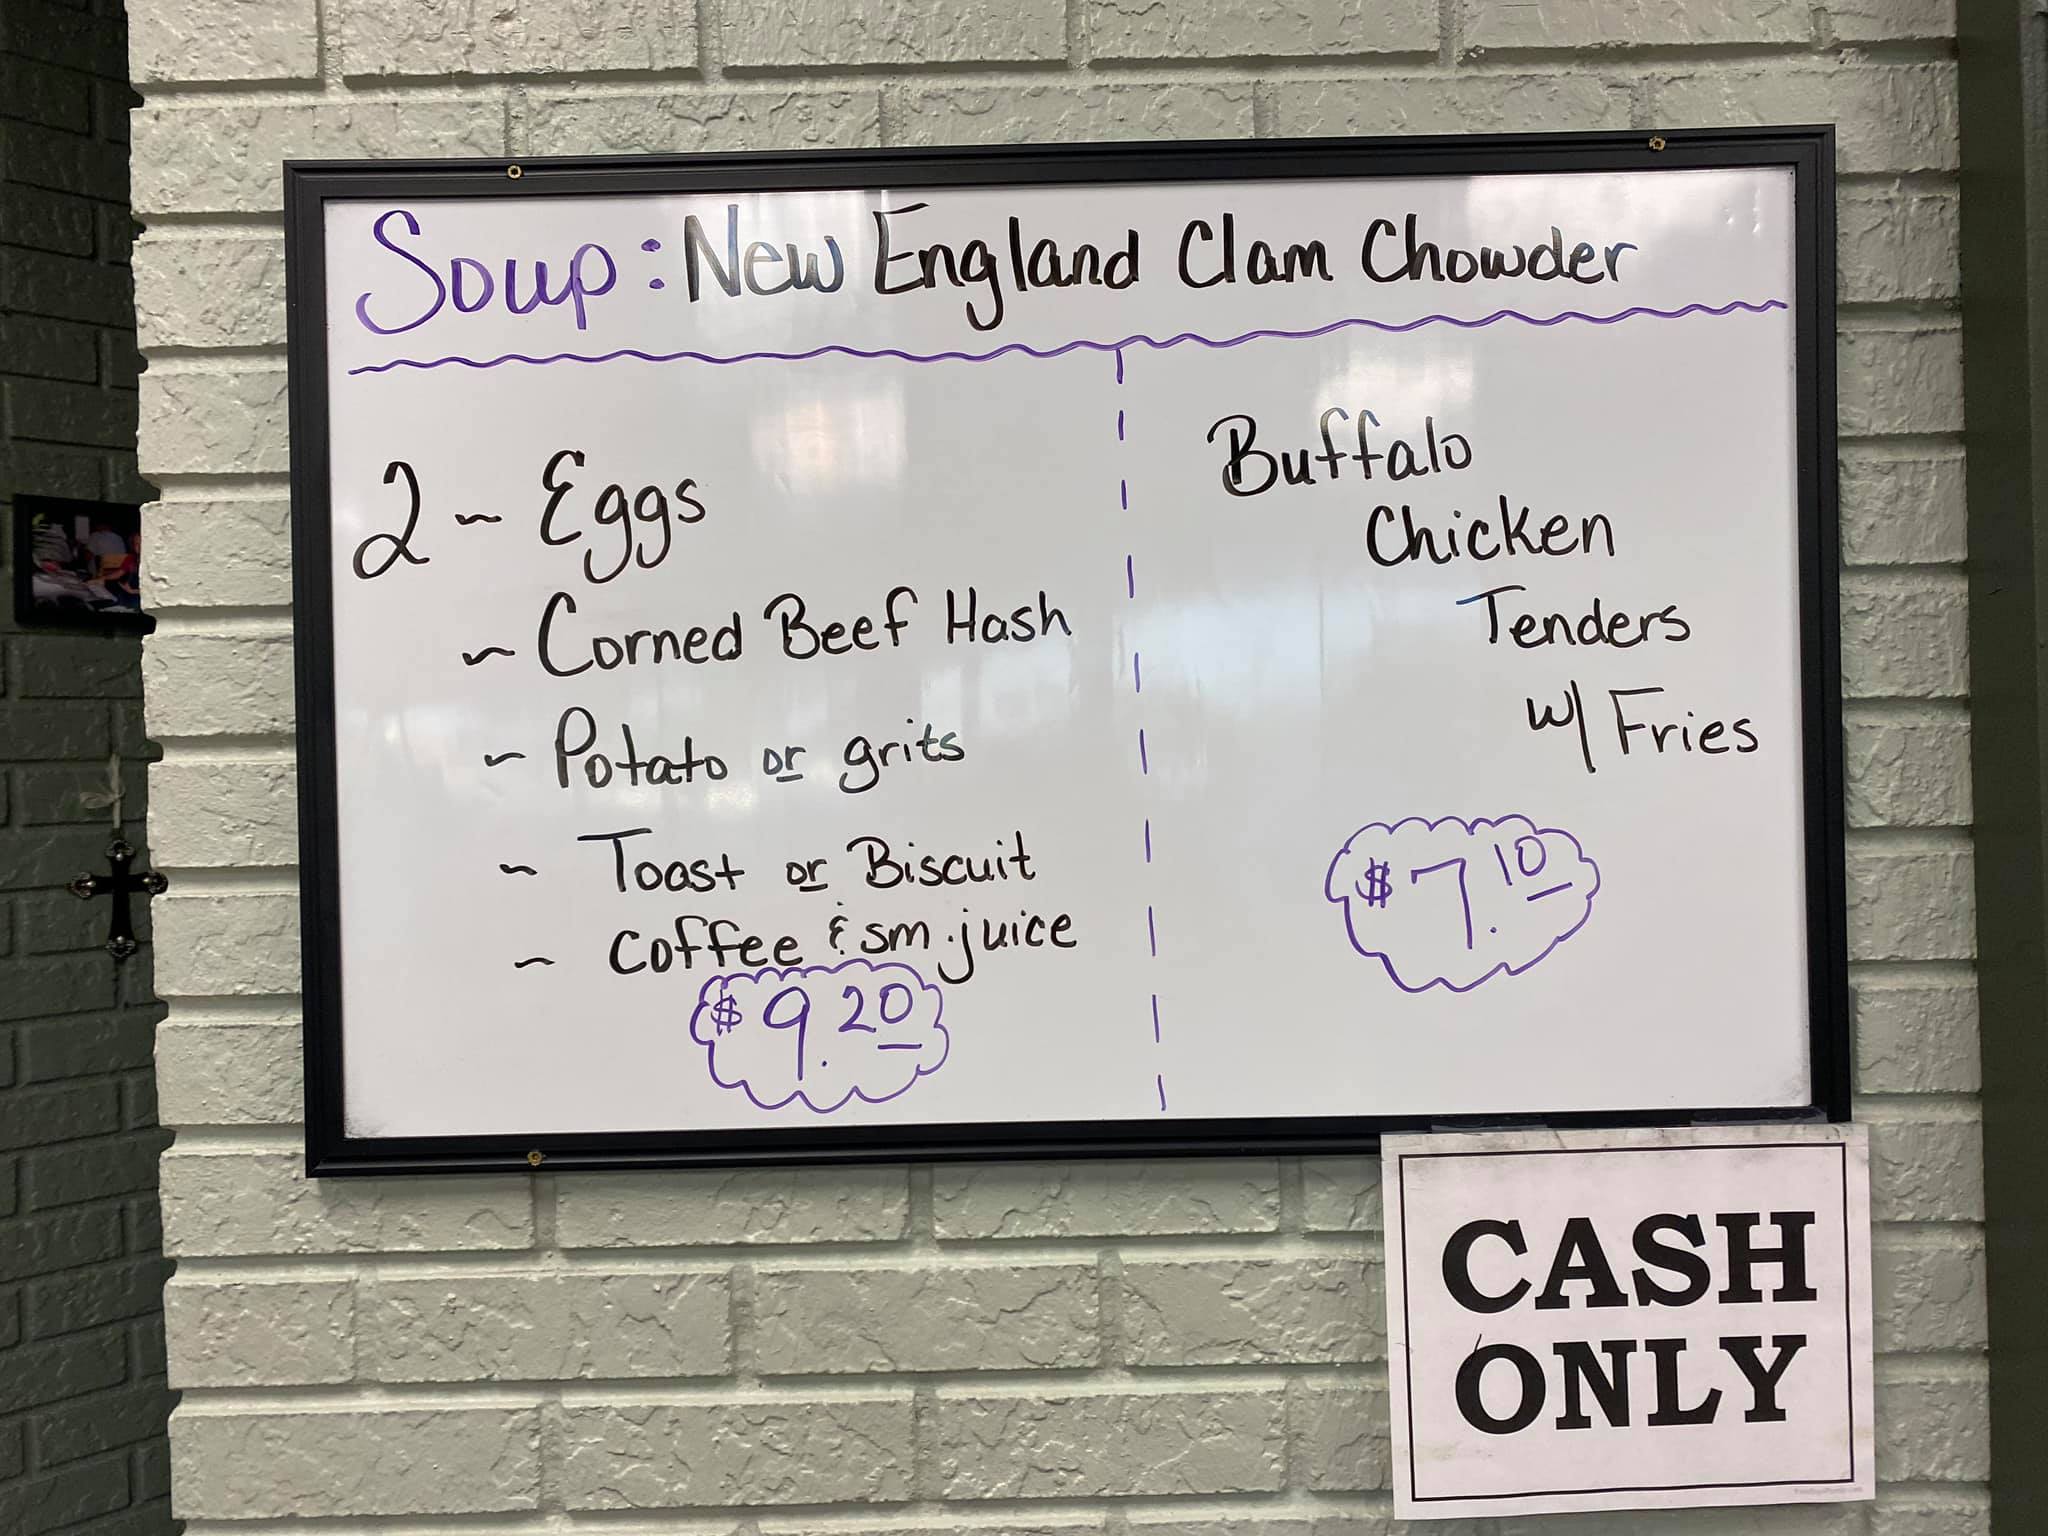 Soup: New England Clam Chowder
2 ~ Eggs
~ Corned Beef Hash
~ Potato or grits
~ Toast or Biscuit
~ Coffee & sm. juice
$9.20
Buffalo
Chicken
Tenders
w/ Fries
$7.10
CASH
ONLY